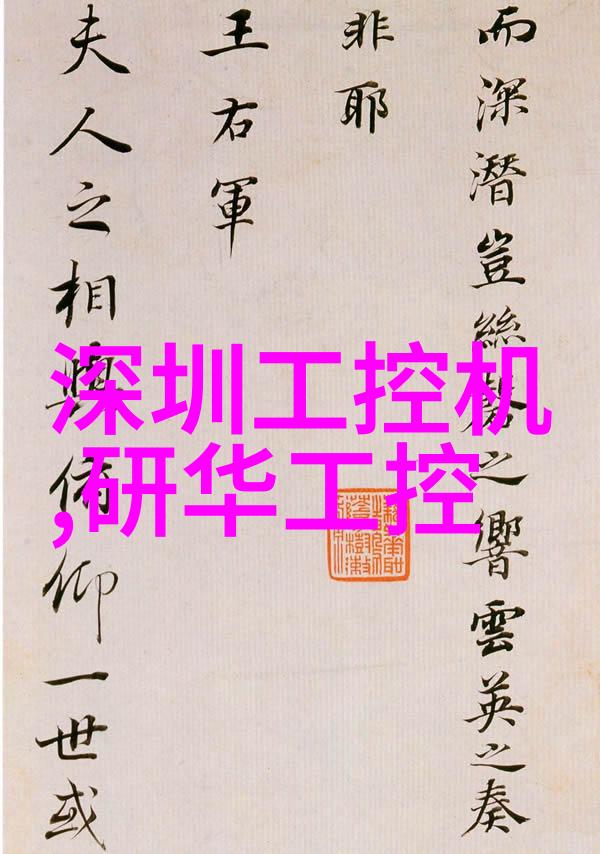 而深潛豈絲之響雲英之奏
非耶
王右軍
夫人之相與俯仰一世或
深圳工控机
,研华工控